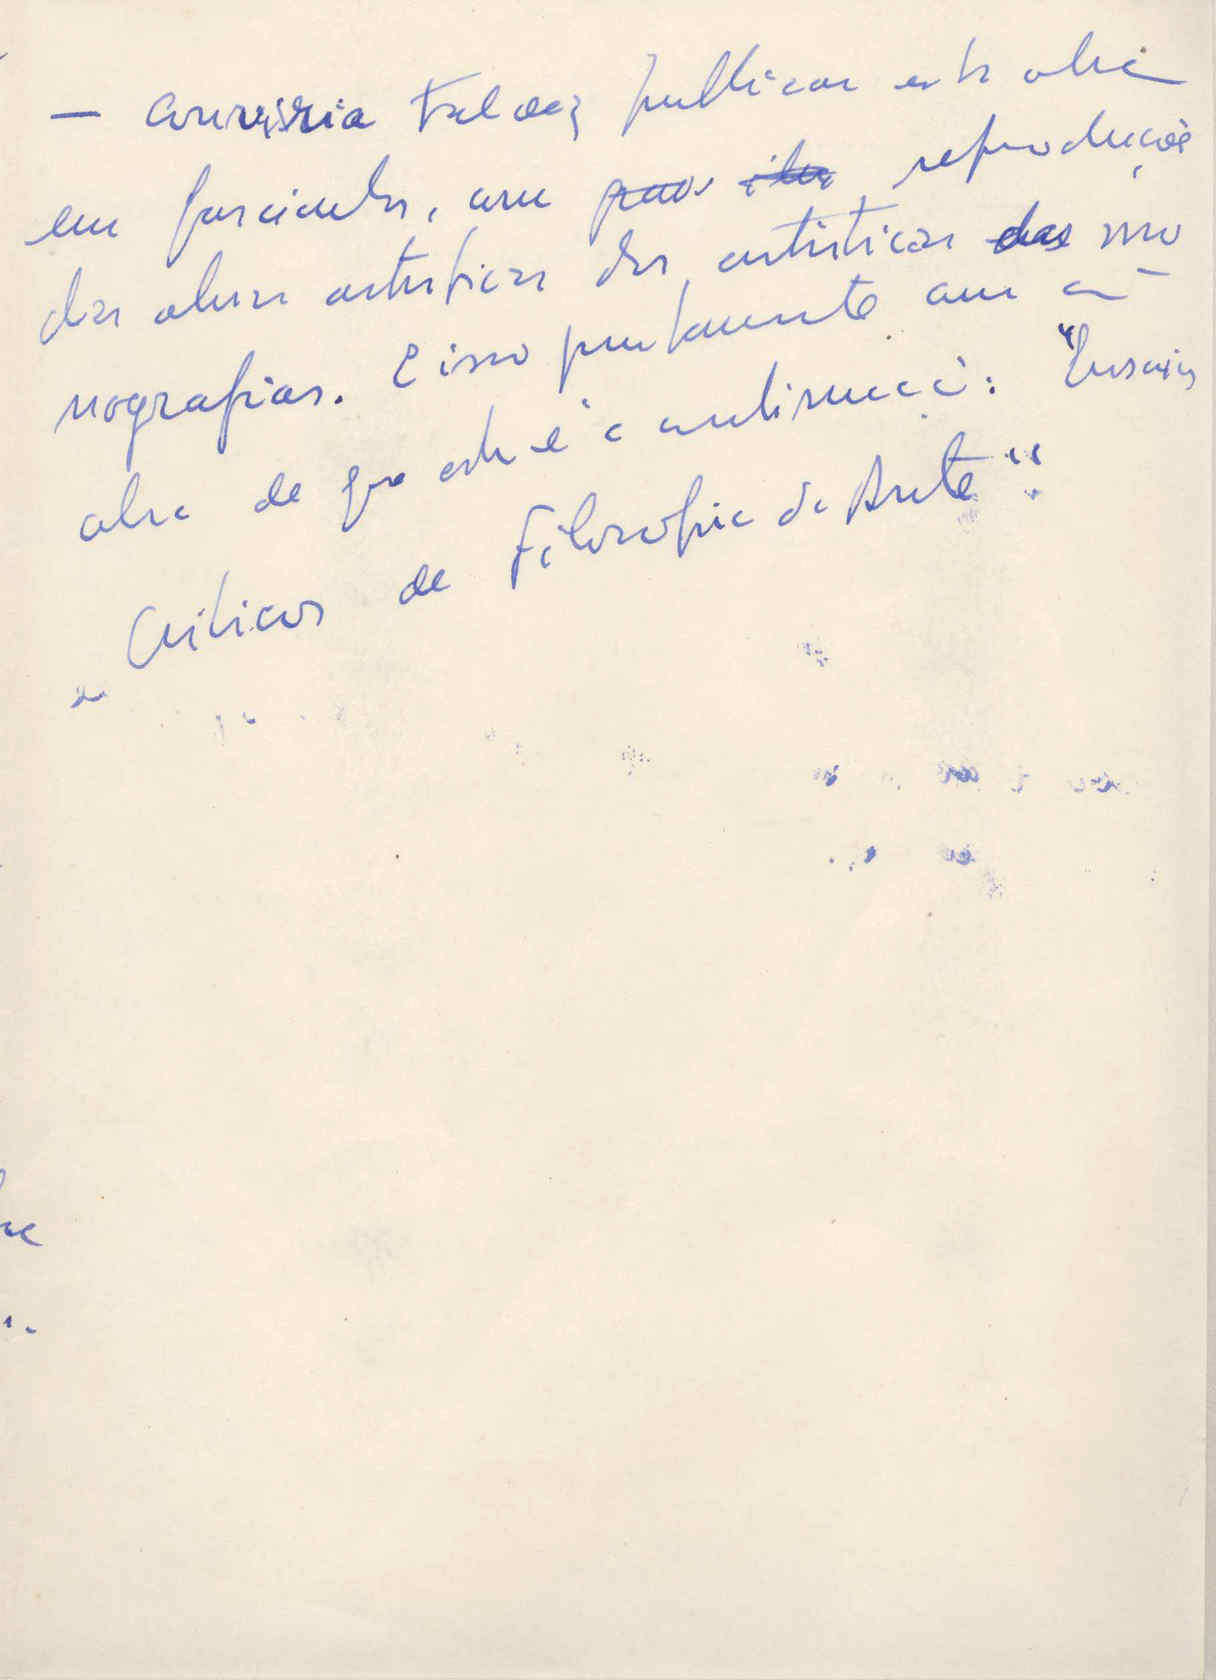 — Conviria talvez publicar esta obra
em fascículos, com reproduções
das obras artísticas das artísticas das mo
nografias. E isso juntamente com a
obra de que esta é a continuação: "Ensaios
Críticos de Filosofia da Arte"